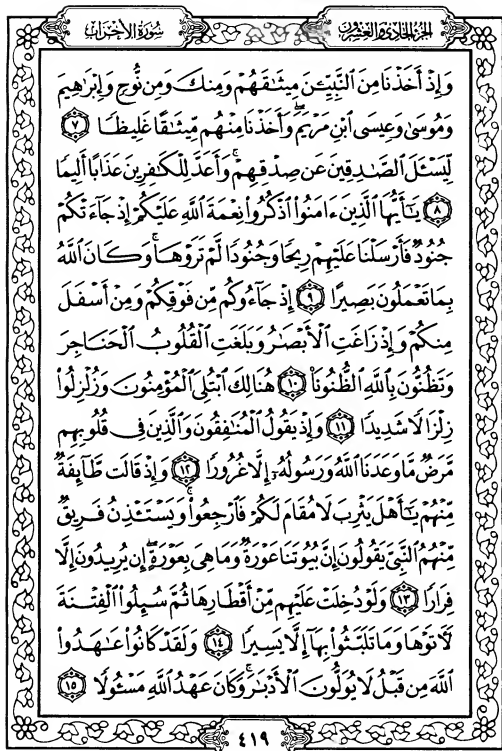 الجزء الحادي والعشرون
سورة الأحزاب
وَإِذْ أَخَذْنَا مِنَ النَّبِيِّـۧنَ مِيثَـٰقَهُمْ وَمِنكَ وَمِن نُّوحٍ وَإِبْرَٰهِيمَ
وَمُوسَىٰ وَعِيسَى ٱبْنِ مَرْيَمَ ۖ وَأَخَذْنَا مِنْهُم مِّيثَـٰقًا غَلِيظًا ٧
لِّيَسْـَٔلَ ٱلصَّـٰدِقِينَ عَن صِدْقِهِمْ ۚ وَأَعَدَّ لِلْكَـٰفِرِينَ عَذَابًا أَلِيمًا
٨ يَـٰٓأَيُّهَا ٱلَّذِينَ ءَامَنُوا۟ ٱذْكُرُوا۟ نِعْمَةَ ٱللَّهِ عَلَيْكُمْ إِذْ جَآءَتْكُمْ
جُنُودٌ فَأَرْسَلْنَا عَلَيْهِمْ رِيحًا وَجُنُودًا لَّمْ تَرَوْهَا ۚ وَكَانَ ٱللَّهُ
بِمَا تَعْمَلُونَ بَصِيرًا ٩ إِذْ جَآءُوكُم مِّن فَوْقِكُمْ وَمِنْ أَسْفَلَ
مِنكُمْ وَإِذْ زَاغَتِ ٱلْأَبْصَـٰرُ وَبَلَغَتِ ٱلْقُلُوبُ ٱلْحَنَاجِرَ
وَتَظُنُّونَ بِٱللَّهِ ٱلظُّنُونَا۠ ١٠ هُنَالِكَ ٱبْتُلِىَ ٱلْمُؤْمِنُونَ وَزُلْزِلُوا۟
زِلْزَالًا شَدِيدًا ١١ وَإِذْ يَقُولُ ٱلْمُنَـٰفِقُونَ وَٱلَّذِينَ فِى قُلُوبِهِم
مَّرَضٌ مَّا وَعَدَنَا ٱللَّهُ وَرَسُولُهُۥٓ إِلَّا غُرُورًا ١٢ وَإِذْ قَالَت طَّآئِفَةٌ
مِّنْهُمْ يَـٰٓأَهْلَ يَثْرِبَ لَا مُقَامَ لَكُمْ فَٱرْجِعُوا۟ ۚ وَيَسْتَـْٔذِنُ فَرِيقٌ
مِّنْهُمُ ٱلنَّبِىَّ يَقُولُونَ إِنَّ بُيُوتَنَا عَوْرَةٌ وَمَا هِىَ بِعَوْرَةٍ ۖ إِن يُرِيدُونَ إِلَّا
فِرَارًا ١٣ وَلَوْ دُخِلَتْ عَلَيْهِم مِّنْ أَقْطَارِهَا ثُمَّ سُئِلُوا۟ ٱلْفِتْنَةَ
لَـَٔاتَوْهَا وَمَا تَلَبَّثُوا۟ بِهَآ إِلَّا يَسِيرًا ١٤ وَلَقَدْ كَانُوا۟ عَـٰهَدُوا۟
ٱللَّهَ مِن قَبْلُ لَا يُوَلُّونَ ٱلْأَدْبَـٰرَ ۚ وَكَانَ عَهْدُ ٱللَّهِ مَسْـُٔولًا ١٥
٤١٩